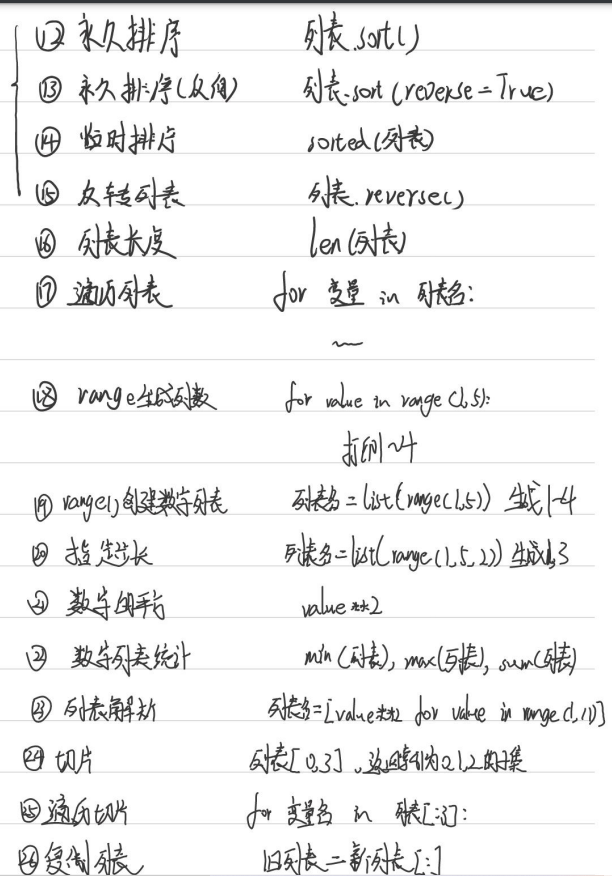 ⑫ 永久排序 列表.sort()
⑬ 永久排序(反向) 列表.sort(reverse=True)
⑭ 临时排序 sorted(列表)
⑮ 反转列表 列表.reverse()
⑯ 列表长度 len(列表)
⑰ 遍历列表 for 变量 in 列表名:
~
⑱ range生成列数 for value in range(1,5):
打印1~4
⑲ range()创建数字列表 列表名=list(range(1,5)) 生成1-4
⑳ 指定步长 列表名=list(range(1,5,2)) 生成1,3
㉑ 数字的平方 value**2
㉒ 数字列表统计 min(列表), max(列表), sum(列表)
㉓ 列表解析 列表名=[value**2 for value in range(1,11)]
㉔ 切片 列表[0,3],返回索引为0,1,2的子集
㉕ 遍历切片 for 变量名 in 列表[:3]:
㉖ 复制列表 旧列表=新列表[:]